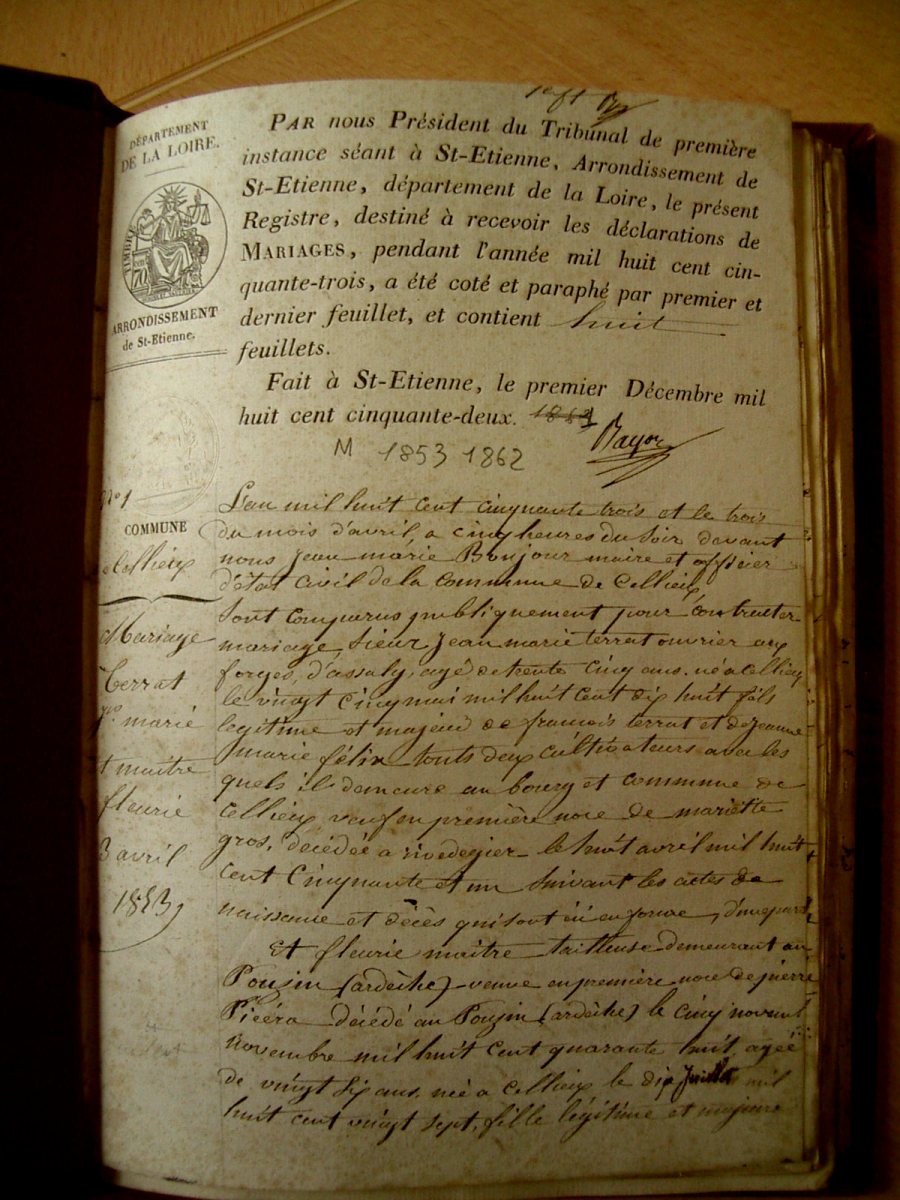 DÉPARTEMENT
DE LA LOIRE.
TIMBRE
ARRONDISSEMENT
de St-Etienne.
PAR nous Président du Tribunal de première
instance séant à St-Etienne, Arrondissement de
St-Etienne, département de la Loire, le présent
Registre, destiné à recevoir les déclarations de
MARIAGES, pendant l'année mil huit cent cin-
quante-trois, a été coté et paraphé par premier et
dernier feuillet, et contient huit
feuillets.
Fait à St-Etienne, le premier Décembre mil
huit cent cinquante-deux.
M 1853 1862
N° 1
COMMUNE
Cellieux
Mariage
terrat
marie
et maitre
fleurie
3 avril
1853
L'an mil huit cent cinquante trois et le trois
du mois d'avril, a cinq heures du soir devant
nous jean marie Bonjour maire et officier
d'état civil de la commune de Cellieux
Sont comparus publiquement pour contracter
mariage, sieur jean marie terrat ouvrier aux
forges, d'assaly, agé de trente cinq ans. né a Cellieux
le vingt cinq mai mil huit cent dix huit fils
legitime et majeur de francois terrat et de jeanne
marie félix touts deux cultivateurs avec les
quels il demeure au bourg et commune de
Cellieux veuf en première noce de mariette
gros, décédée a rivedegier le huit avril mil huit
cent cinquante et un suivant les actes de
naissance et décès qui sont ici en forme, d'une part
Et fleurie maitre tailleuse demeurant au
Pouzin (ardèche) veuve en première noce de pierre
décédé au Pouzin (ardèche) le cinq
novembre mil huit cent quarante huit, agée
de vingt six ans. née a Cellieux le dix juillet mil
huit cent vingt sept, fille légitime et majeure